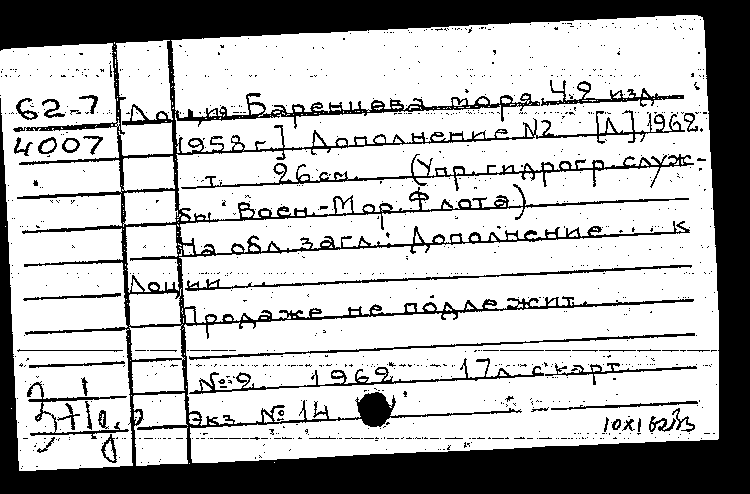 62-7 [Лоция Баренцева моря, Ч.2 изд.
4007 1958 г.] Дополнение N2 [Л.], 1962.
т. 26 см. (Упр. гидрогр. служ-
бы Воен.-Мор. Флота)
На обл. загл.: Дополнение... к
Лоции...
Продаже не подлежит.
№ 2. 1962. 17 л. с карт.
Экз. № 14
10X162